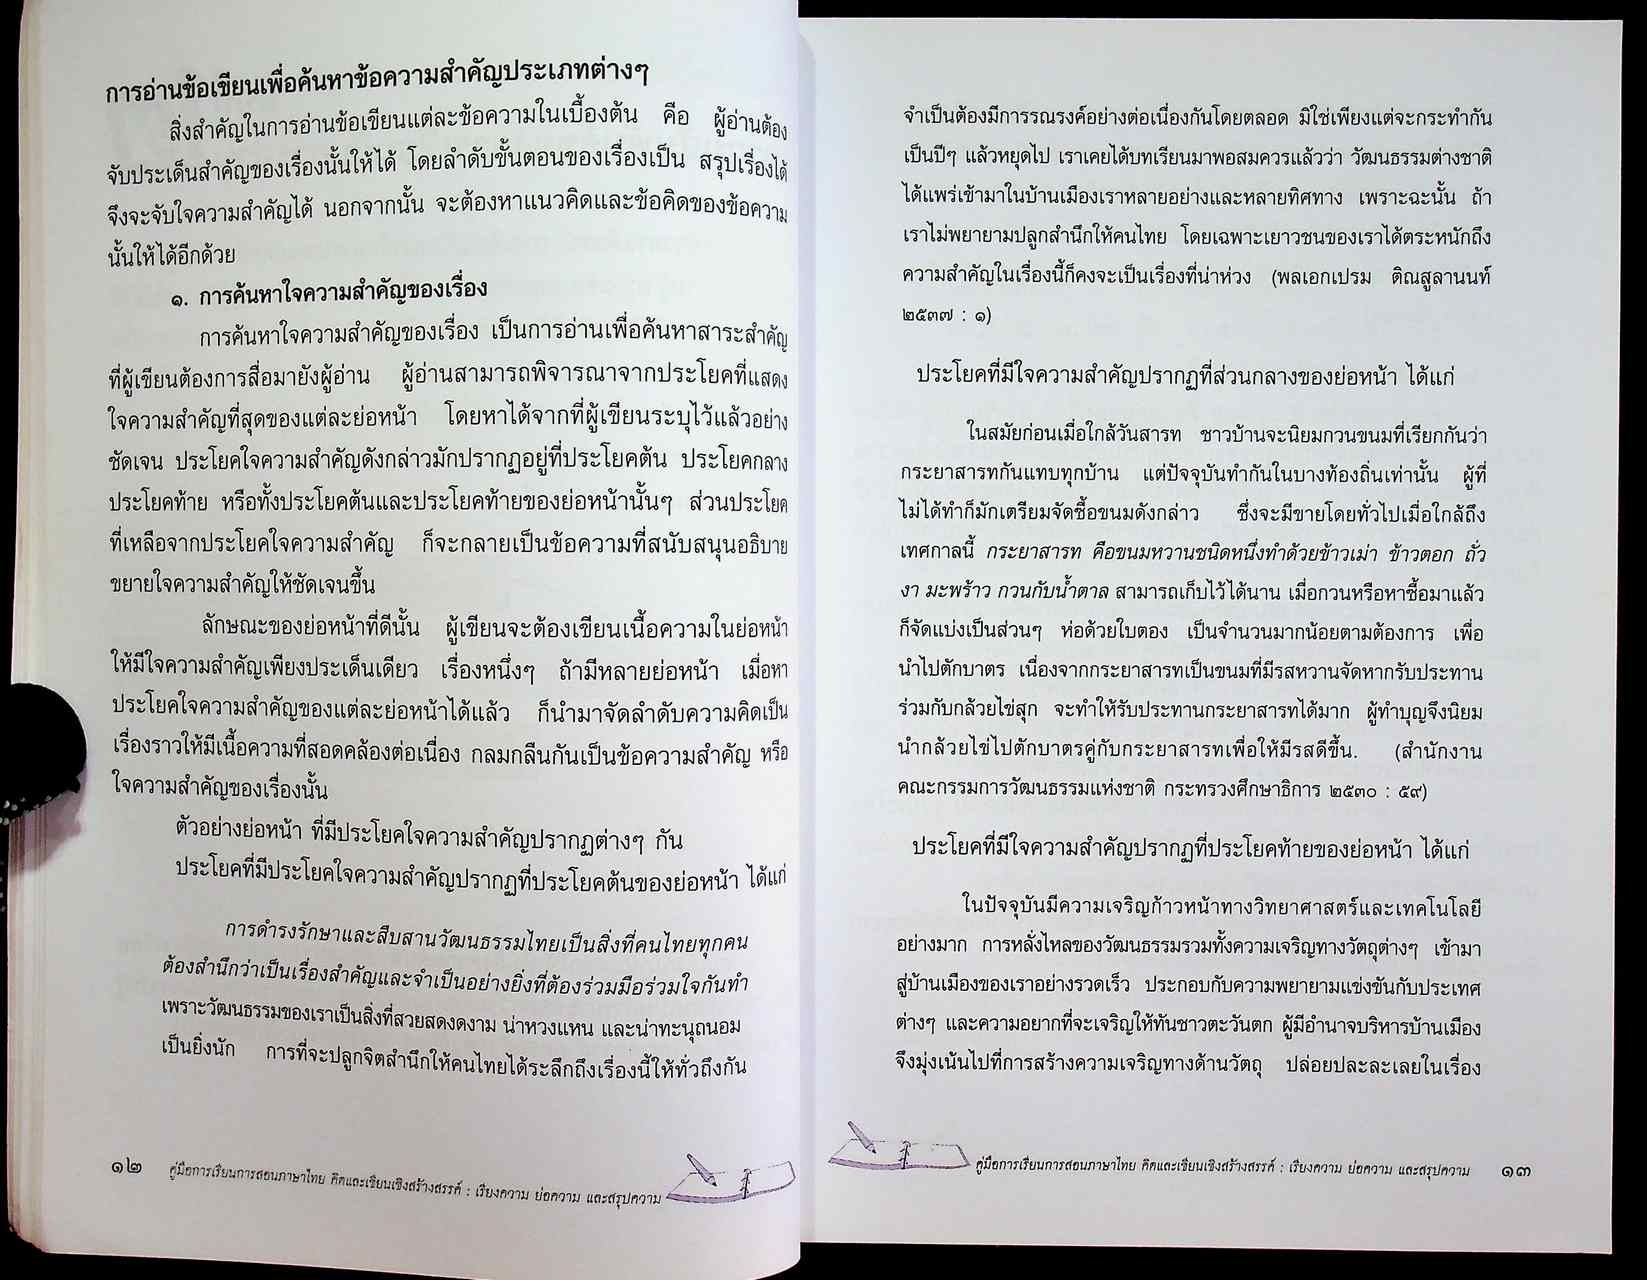 การอ่านข้อเขียนเพื่อค้นหาข้อความสำคัญประเภทต่างๆ
สิ่งสำคัญในการอ่านข้อเขียนแต่ละข้อความในเบื้องต้น คือ ผู้อ่านต้อง
จับประเด็นสำคัญของเรื่องนั้นให้ได้ โดยลำดับขั้นตอนของเรื่องเป็น สรุปเรื่องได้
จึงจะจับใจความสำคัญได้ นอกจากนั้น จะต้องหาแนวคิดและข้อคิดของข้อความ
นั้นให้ได้อีกด้วย
๑. การค้นหาใจความสำคัญของเรื่อง
การค้นหาใจความสำคัญของเรื่อง เป็นการอ่านเพื่อค้นหาสาระสำคัญ
ที่ผู้เขียนต้องการสื่อมายังผู้อ่าน ผู้อ่านสามารถพิจารณาจากประโยคที่แสดง
ใจความสำคัญที่สุดของแต่ละย่อหน้า โดยหาได้จากที่ผู้เขียนระบุไว้แล้วอย่าง
ชัดเจน ประโยคใจความสำคัญดังกล่าวมักปรากฏอยู่ที่ประโยคต้น ประโยคกลาง
ประโยคท้าย หรือทั้งประโยคต้นและประโยคท้ายของย่อหน้านั้นๆ ส่วนประโยค
ที่เหลือจากประโยคใจความสำคัญ ก็จะกลายเป็นข้อความที่สนับสนุนอธิบาย
ขยายใจความสำคัญให้ชัดเจนขึ้น
ลักษณะของย่อหน้าที่ดีนั้น ผู้เขียนจะต้องเขียนเนื้อความในย่อหน้า
ให้มีใจความสำคัญเพียงประเด็นเดียว เรื่องหนึ่งๆ ถ้ามีหลายย่อหน้า เมื่อหา
ประโยคใจความสำคัญของแต่ละย่อหน้าได้แล้ว ก็นำมาจัดลำดับความคิดเป็น
เรื่องราวให้มีเนื้อความที่สอดคล้องต่อเนื่อง กลมกลืนกันเป็นข้อความสำคัญ หรือ
ใจความสำคัญของเรื่องนั้น
ตัวอย่างย่อหน้า ที่มีประโยคใจความสำคัญปรากฏต่างๆ กัน
ประโยคที่มีประโยคใจความสำคัญปรากฏที่ประโยคต้นของย่อหน้า ได้แก่
การดำรงรักษาและสืบสานวัฒนธรรมไทยเป็นสิ่งที่คนไทยทุกคน
ต้องสำนึกว่าเป็นเรื่องสำคัญและจำเป็นอย่างยิ่งที่ต้องร่วมมือร่วมใจกันทำ
เพราะวัฒนธรรมของเราเป็นสิ่งที่สวยสดงดงาม น่าหวงแหน และน่าทะนุถนอม
เป็นยิ่งนัก การที่จะปลูกจิตสำนึกให้คนไทยได้ระลึกถึงเรื่องนี้ให้ทั่วถึงกัน
๑๒ คู่มือการเรียนการสอนภาษาไทย คิดและเขียนเชิงสร้างสรรค์ : เรียงความ ย่อความ และสรุปความ
จำเป็นต้องมีการรณรงค์อย่างต่อเนื่องกันโดยตลอด มิใช่เพียงแต่จะกระทำกัน
เป็นปีๆ แล้วหยุดไป เราเคยได้บทเรียนมาพอสมควรแล้วว่า วัฒนธรรมต่างชาติ
ได้แพร่เข้ามาในบ้านเมืองเราหลายอย่างและหลายทิศทาง เพราะฉะนั้น ถ้า
เราไม่พยายามปลูกสำนึกให้คนไทย โดยเฉพาะเยาวชนของเราได้ตระหนักถึง
ความสำคัญในเรื่องนี้ก็คงจะเป็นเรื่องที่น่าห่วง (พลเอกเปรม ติณสูลานนท์
๒๕๓๗ : ๑)
ประโยคที่มีใจความสำคัญปรากฏที่ส่วนกลางของย่อหน้า ได้แก่
ในสมัยก่อนเมื่อใกล้วันสารท ชาวบ้านจะนิยมกวนขนมที่เรียกกันว่า
กระยาสารทกันแทบทุกบ้าน แต่ปัจจุบันทำกันในบางท้องถิ่นเท่านั้น ผู้ที่
ไม่ได้ทำก็มักเตรียมจัดซื้อขนมดังกล่าว ซึ่งจะมีขายโดยทั่วไปเมื่อใกล้ถึง
เทศกาลนี้ กระยาสารท คือขนมหวานชนิดหนึ่งทำด้วยข้าวเม่า ข้าวตอก ถั่ว
งา มะพร้าว กวนกับน้ำตาล สามารถเก็บไว้ได้นาน เมื่อกวนหรือหาซื้อมาแล้ว
ก็จัดแบ่งเป็นส่วนๆ ห่อด้วยใบตอง เป็นจำนวนมากน้อยตามต้องการ เพื่อ
นำไปตักบาตร เนื่องจากกระยาสารทเป็นขนมที่มีรสหวานจัดหากรับประทาน
ร่วมกับกล้วยไข่สุก จะทำให้รับประทานกระยาสารทได้มาก ผู้ทำบุญจึงนิยม
นำกล้วยไข่ไปตักบาตรคู่กับกระยาสารทเพื่อให้มีรสดีขึ้น. (สำนักงาน
คณะกรรมการวัฒนธรรมแห่งชาติ กระทรวงศึกษาธิการ ๒๕๓๐ : ๕๙)
ประโยคที่มีใจความสำคัญปรากฏที่ประโยคท้ายของย่อหน้า ได้แก่
ในปัจจุบันมีความเจริญก้าวหน้าทางวิทยาศาสตร์และเทคโนโลยี
อย่างมาก การหลั่งไหลของวัฒนธรรมรวมทั้งความเจริญทางวัตถุต่างๆ เข้ามา
สู่บ้านเมืองของเราอย่างรวดเร็ว ประกอบกับความพยายามแข่งขันกับประเทศ
ต่างๆ และความอยากที่จะเจริญให้ทันชาวตะวันตก ผู้มีอำนาจบริหารบ้านเมือง
จึงมุ่งเน้นไปที่การสร้างความเจริญทางด้านวัตถุ ปล่อยปละละเลยในเรื่อง
คู่มือการเรียนการสอนภาษาไทย คิดและเขียนเชิงสร้างสรรค์ : เรียงความ ย่อความ และสรุปความ ๑๓